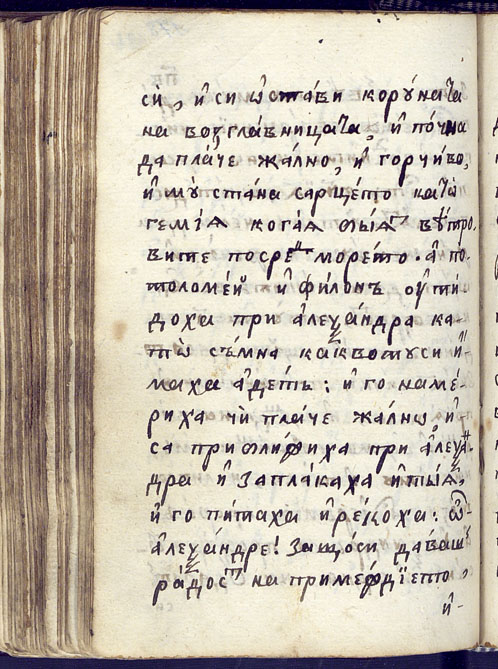 сѝ, и҆ си ѡ҆ста́ви кору́ната
на возгла́вницата, и҆ по́чна
да пла́че жа́лно, и҆ горчи́во,
и҆ мꙋ̀ ста́на сарце́то катѡ̀
геми́ѧ кога́ѧ ве́тро,
вите посрѣ море́то. а҆ по-
толоме́й и҆ фи́лонъ ѻу҆ти́-
доха при а҆леѯа́ндра ка-
тѡ̀ се́мна ка́кво мꙋ си и҆-
маха а҆де́ть: и҆ го наме́-
риха чѝ пла́че жа́лнѡ, и҆-
са при при а҆леѯа́н
дра и҆ запла́каха и҆ ті́ѧ,
и҆ го пи́таха и҆ реко́ха: ѽ-
а҆леѯа́ндре! защо́си дава́ш
ра́дост на
и҆-